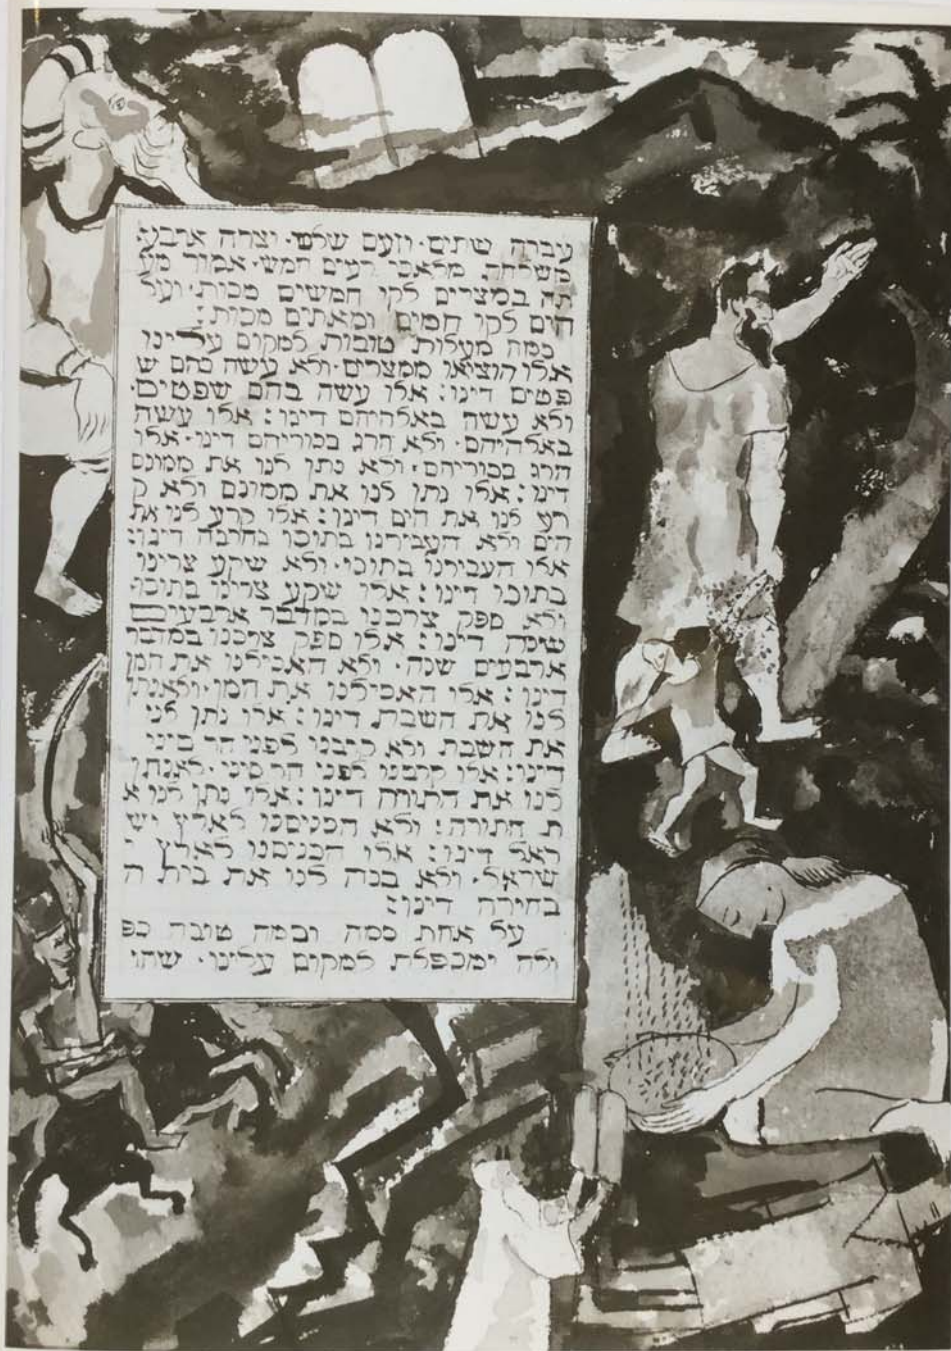 עברה שתים· וזעם שלש· וצרה ארבע·
משלחת מלאכי רעים חמש· אמור מע
תה במצרים לקו חמשים מכות· ועל
הים לקו חמים ומאתים מכות:
כמה מעלות טובות למקום עלינו
אלו הוציאו ממצרים· ולא עשה בהם ש
פטים דינו: אלו עשה בהם שפטים·
ולא עשה באלהיהם דינו: אלו עשה
באלהיהם· ולא הרג בכוריהם דינו· אלו
הרג בכוריהם· ולא נתן לנו את ממונם
דינו: אלו נתן לנו את ממונם ולא ק
רע לנו את הים דינו: אלו קרע לנו את
הים ולא העבירנו בתוכו בחרבה דינו:
אלו העבירנו בתוכו· ולא שקע צרינו
בתוכו דינו: אלו שקע צרינו בתוכו·
ולא ספק צרכנו במדבר ארבעים
שנה דינו: אלו ספק צרכנו במדבר
ארבעים שנה· ולא האכילנו את המן
דינו: אלו האכילנו את המן· ולא נתן
לנו את השבת דינו: אלו נתן לני
את השבת ולא קרבנו לפני הר סיני
דינו: אלו קרבנו לפני הר סיני· לא נתן
לנו את התורה דינו: אלו נתן לנו א
ת התורה: ולא הכניסנו לארץ יש
ראל דינו: אלו הכניסנו לארץ י
שראל· ולא בנה לנו את בית ה
בחירה דינו:
על אחת כמה וכמה טובה כפ
ולה ומכפלת למקום עלינו· שהו